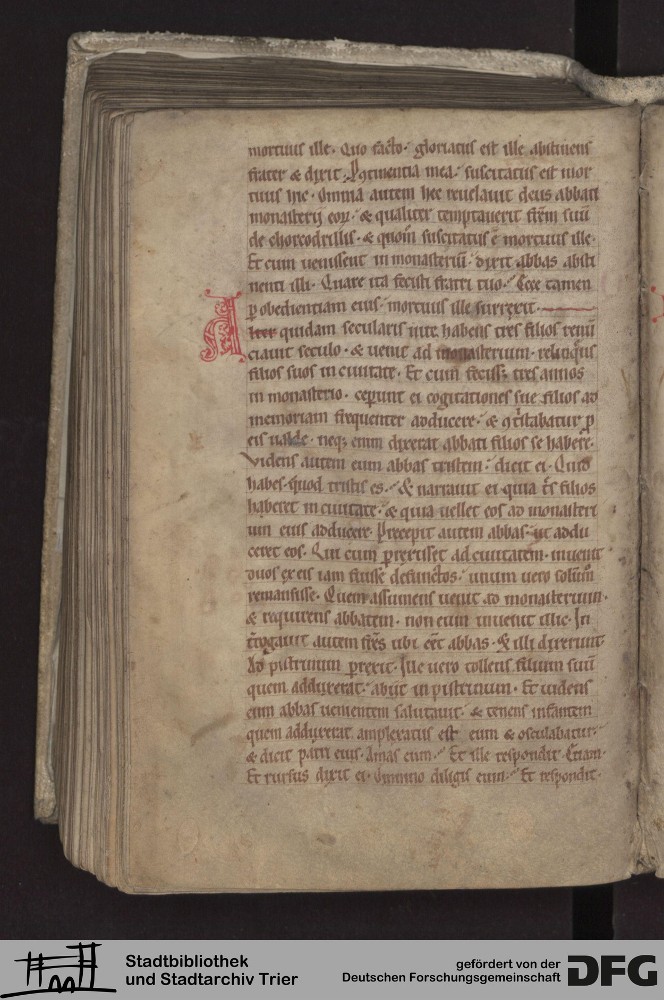 mortuus ille. Quo facto. gloriatus est ille abstinens
frater & dixit. Pacientia mea. suscitatus est mor
tuus hic. Omnia autem hec reuelauit deus abbati
monasterij eoꝝ. & qualiter temptauerit frēm suū
de chorcodrillis. & quom̄ suscitatus ē mortuus ille.
Et cum uenissent in monasteriū. dixit abbas absti
nenti illi. Quare ita fecisti fratri tuo. Ecce tamen
ꝑ obedientiam eius mortuus ille surrexit.
Alter quidam secularis uite habens tres filios renū
ciauit seculo. & uenit ad monasterium. relinq̄ns
filios suos in ciuitate. Et cum fecissꝫ tres annos
in monasterio. ceperunt ei cogitationes sue filios ad
memoriam frequenter adducere. & ꝯtⁱstabatur ꝓ
eis ualde. neqꝫ enim dixerat abbati filios se habere.
Videns autem eum abbas tristem. dicit ei. Quid
habes. quod tristis es. & narrauit ei quia tⁱs filios
haberet in ciuitate. & quia uellet eos ad monasteri
um eius adducere. Precepit autem abbas. ut addu
ceret eos. Qui cum ꝑrexisset ad ciuitatem. inuenit
duos ex eis iam fuisse defunctos. unum uero solum̄
remansisse. Quem assumens uenit ad monasterium.
& requirens abbatem. non eum inuenit illic. In
tͬogauit autem frēs ubi eēt abbas. Et illi dixerunt.
Ad pistrinum ꝑrexit. Ille uero tollens filium suū
quem adduxerat. abijt in pistrinum. Et uidens
eum abbas uenientem salutauit. & tenens infantem
quem adduxerat amplexatus est eum & osculabatur.
& dicit patri eius. Amas eum. Et ille respondit. Etiam.
Et rursus dixit ei. Omnino diligis eum. Et respondit.
Stadtbibliothek
und Stadtarchiv Trier
gefördert von der
Deutschen Forschungsgemeinschaft
DFG